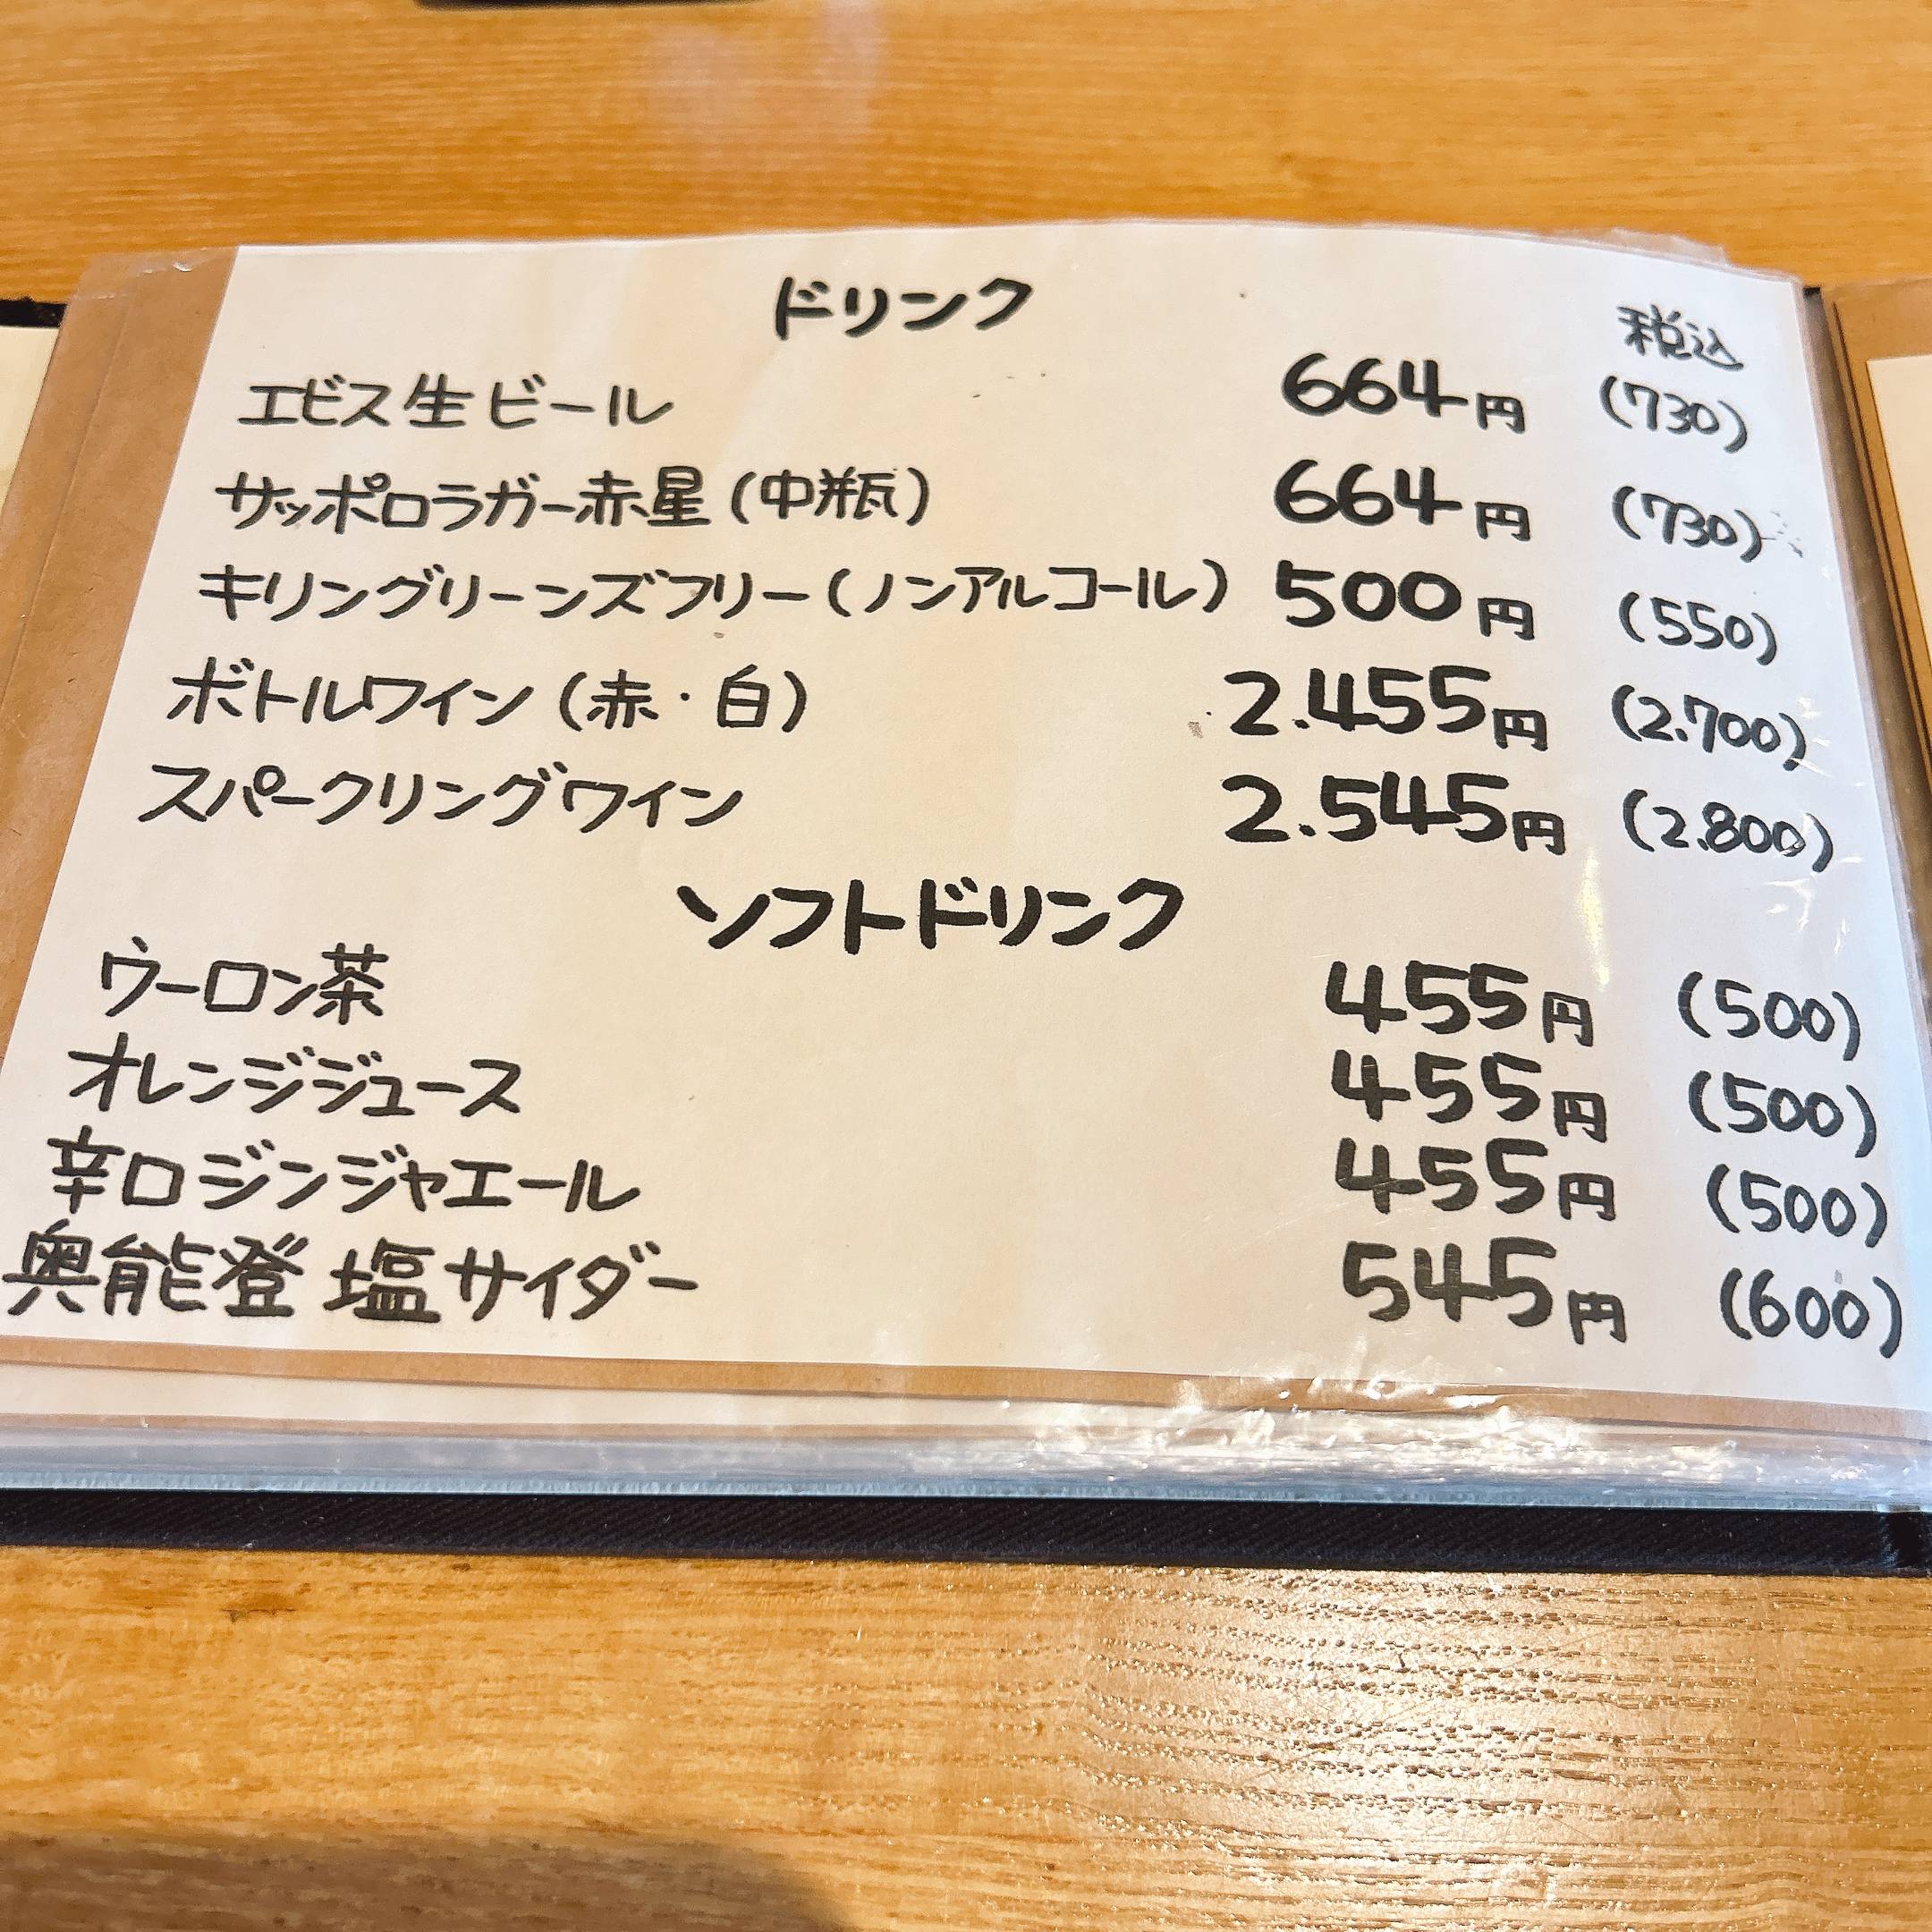 ドリンク
税込
エビス生ビール 664円 (730)
サッポロラガー赤星(中瓶) 664円 (730)
キリングリーンズフリー(ノンアルコール) 500円 (550)
ボトルワイン(赤・白) 2.455円 (2.700)
スパークリングワイン 2.545円 (2.800)
ソフトドリンク
ウーロン茶 455円 (500)
オレンジジュース 455円 (500)
辛口ジンジャエール 455円 (500)
奥能登 塩サイダー 545円 (600)